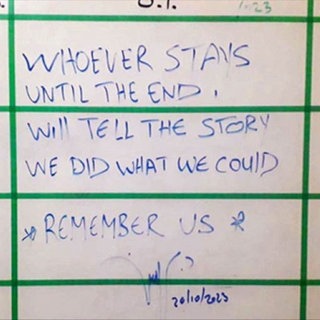 WHOEVER STAYS
UNTIL THE END.
Will TELL THE STORY
WE DID WHAT WE COULD
*REMEMBER US *
20/10/2023